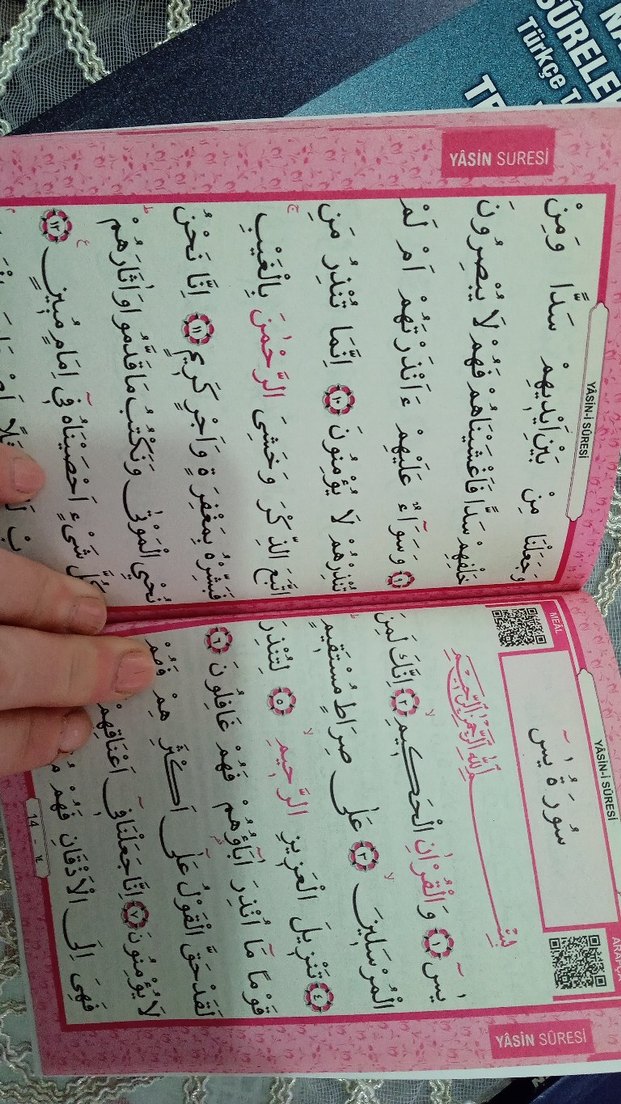 NA
SÛRELE
Türkçe T
YÂSİN SURESİ
YÂSİN-İ SÛRESİ
MEÂL
ARAPÇA
سُورَةُ يٰسٓ
بِسْمِ اللّٰهِ الرَّحْمٰنِ الرَّحِيمِ
يٰسٓ ﴿١﴾ وَالْقُرْاٰنِ الْحَكِيمِ ﴿٢﴾ اِنَّكَ لَمِنَ
الْمُرْسَلِينَ ﴿٣﴾ عَلٰى صِرَاطٍ مُسْتَقِيمٍ
﴿٤﴾ تَنْزِيلَ الْعَزِيزِ الرَّحِيمِ ﴿٥﴾ لِتُنْذِرَ
قَوْمًا مَٓا اُنْذِرَ اٰبَٓاؤُهُمْ فَهُمْ غَافِلُونَ ﴿٦﴾
لَقَدْ حَقَّ الْقَوْلُ عَلٰٓى اَكْثَرِهِمْ فَهُمْ
لَا يُؤْمِنُونَ ﴿٧﴾ اِنَّا جَعَلْنَا فِٓى اَعْنَاقِهِمْ
فَهِىَ اِلَى الْاَذْقَانِ فَهُمْ
14 - ١٤
YÂSİN SÛRESİ
YÂSİN-İ SÛRESİ
وَجَعَلْنَا مِنْ بَيْنِ اَيْدِيهِمْ سَدًّا وَمِنْ
خَلْفِهِمْ سَدًّا فَاَغْشَيْنَاهُمْ فَهُمْ لَا يُبْصِرُونَ
﴿٩﴾ وَسَوَٓاءٌ عَلَيْهِمْ ءَاَنْذَرْتَهُمْ اَمْ لَمْ
تُنْذِرْهُمْ لَا يُؤْمِنُونَ ﴿١٠﴾ اِنَّمَا تُنْذِرُ مَنِ
اتَّبَعَ الذِّكْرَ وَخَشِىَ الرَّحْمٰنَ بِالْغَيْبِ
فَبَشِّرْهُ بِمَغْفِرَةٍ وَاَجْرٍ كَرِيمٍ ﴿١١﴾ اِنَّا نَحْنُ
نُحْيِ الْمَوْتٰى وَنَكْتُبُ مَا قَدَّمُوا وَاٰثَارَهُمْ
كُلَّ شَىْءٍ اَحْصَيْنَاهُ فِٓى اِمَامٍ مُبِينٍ ﴿١٢﴾